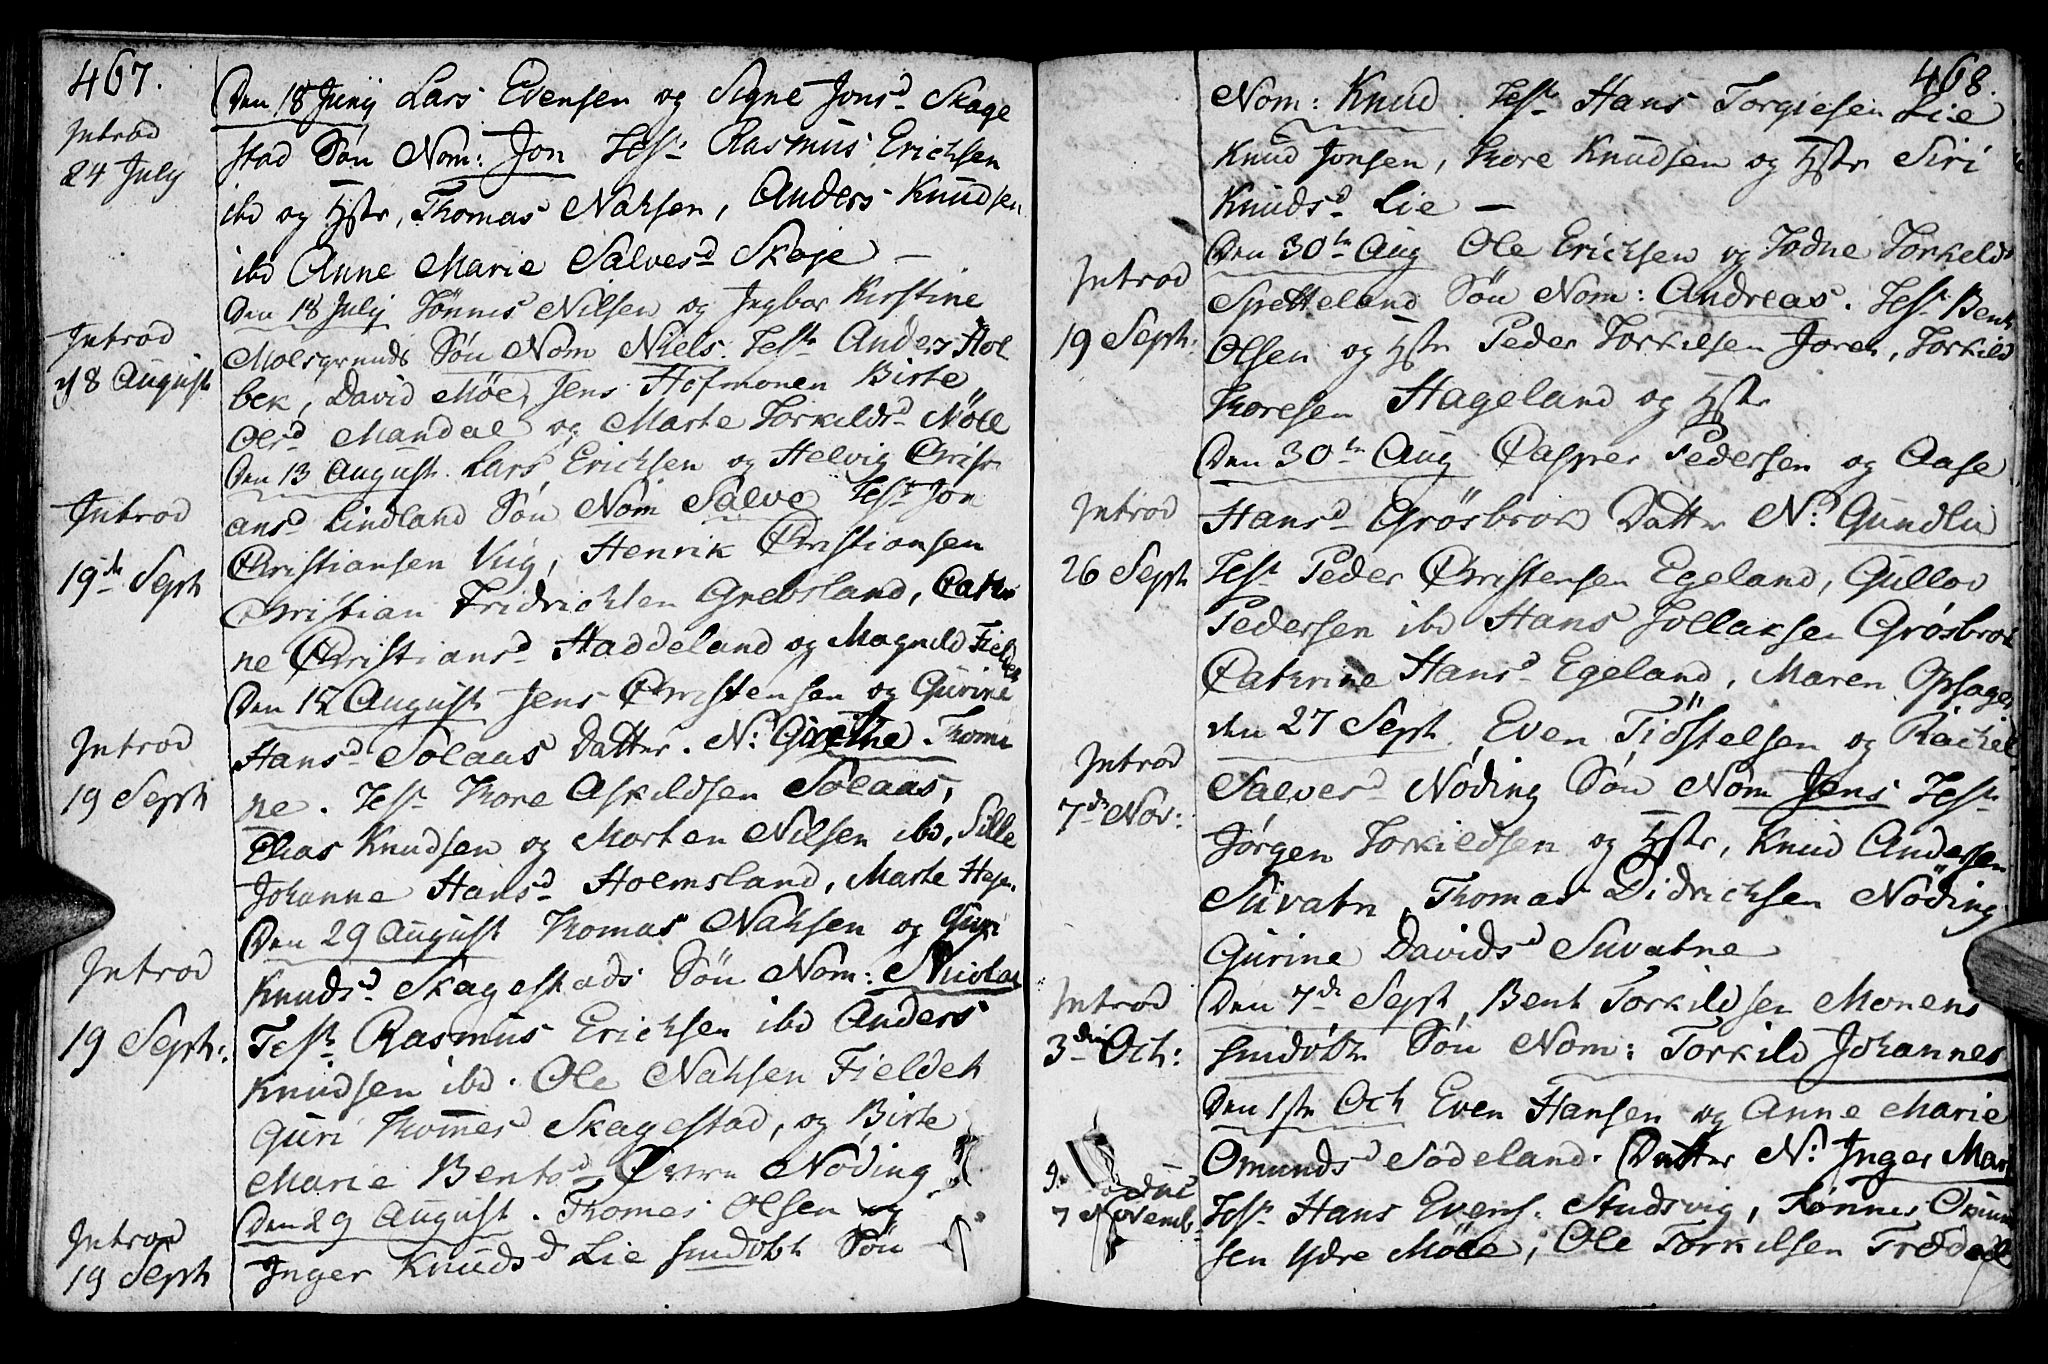 467.
Introd
24 July
Den 18 Junij Lars Evensen og Signe Jonsd Skage
stad Søn Nom: Jon Test: Rasmus Erichsen
ibd og Hstr, Thomas Nahsen, Anders Knudsen
ibd Anne Marie Salvesd Skoje —
Introd
d 8 August
Den 18 July Tønnes Nilsen og Ingbor Kirstine
Molsgrunds Søn Nom Niels. Test Anders Hol
bek, David Møe, Jens Hofmonen Birte
Olsd Mandal og Marte Torkildsd Nöll
Introd
19de Sept
Den 13 August Lars Erichsen og Helvig Christ
ansd Lindland Søn Nom Salve Test Jon
Christiansen Viig, Henrik Christiansen
Christian Fridrichsen Grebsland, Cathri
ne Christiansd Haddeland og Magnild Fieldet
Introd
19 Sept
Den 12 August Jens Christensen og Gurine
Hansd Solaas Datter. N: Grethe Thomi
ne. Test Thore Askildsen Solaas,
Elias Knudsen og Morten Nilsen ibd, Sille
Johanne Hansd Holmsland, Marte Hagen.
Introd
19 Sept:
Den 29 August Thomas Nahsen og Guri
Knudsd Skagestads Søn Nom: Nicolai
Test Rasmus Erichsen ibd Anders
Knudsen ibd. Ole Nahsen Fieldet
Guri Thomesd Skagestad, og Birte
Marie Bentsd Øvre Nøding
Introd
19 Sept
Den 29 August. Thomes Olsen og
Inger Knudsd Lie smdøbt Søn
468.
Nom: Knud. Test Hans Torgiesen Lie
Knud Jonsen, Thore Knudsen og Hstr Siri
Knudsd Lie —
Introd
19 Sept:
Den 30te Aug Ole Erichsen og Jodne Torkelds
Spetteland Søn Nom: Andreas. Test Bent
Olsen og Hstr Peder Torkilsen Joren, Torkild
Thoresen Hageland og Hstr
Introd
26 Sept
Den 30te Aug Casper Pedersen og Aase
Hansd Grösbrok Datter N: Gundlu
Test Peder Christensen Egeland, Gullov
Pedersen ibd Hans Jollaksen Grösbrok
Catrine Hansd Egeland, Maren Opsager
Introd
7de Nov:
den 27 Sept Even Tiöstelsen og Rachel
Salvesd Nøding Søn Nom Jens Test
Jørgen Torkildsen og Hstr, Knud Andersen
Suvatn, Thomas Didrichsen Nöding
Gurine Davidsd Suvatne
Introd
3die Oct:
Den 7de Sept, Bent Torkildsen Monens
smdøbt Søn Nom: Torkild Johannes
7 Novemb
Den 1ste Oct Even Hansen og Anne Marie
Omundsd Sodeland. Datter N: Inger Mari
Test Hans Evens: Studsvig, Tønnes Omun
sen Ydre Møll, Ole Torkilsen Trædal